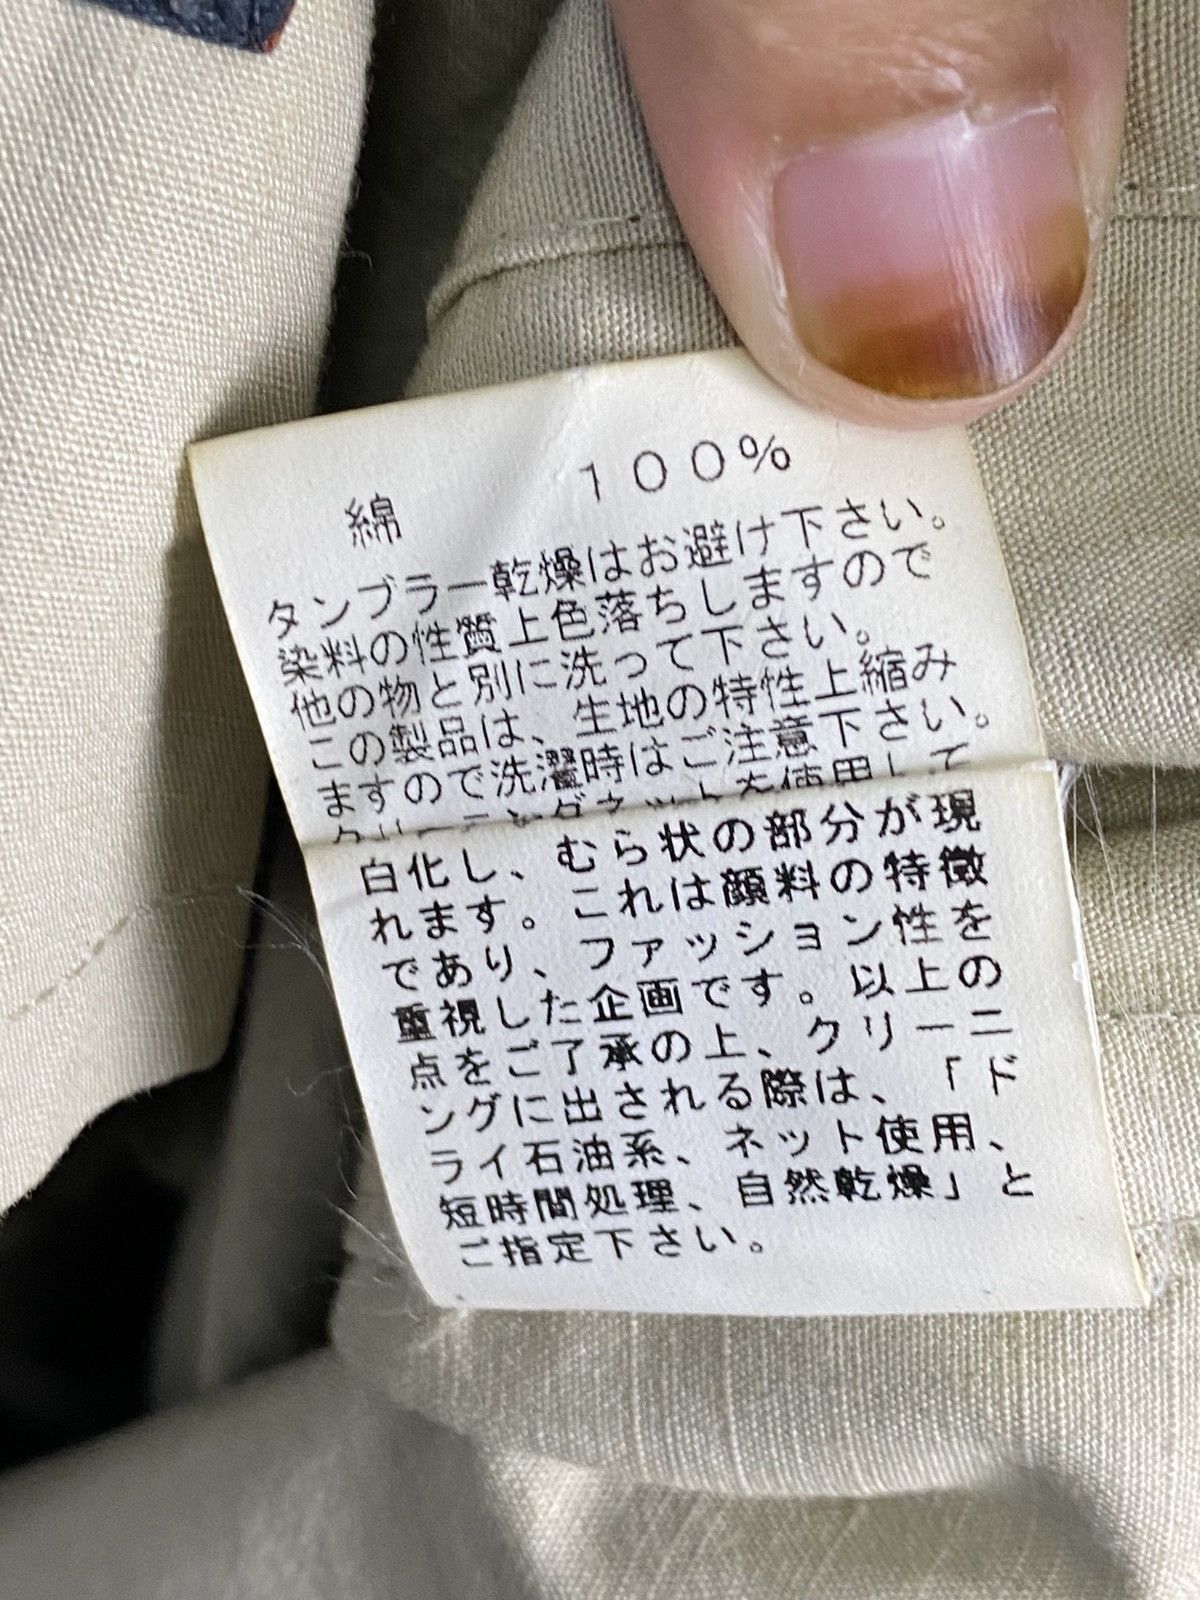 綿 100%
タンブラー乾燥はお避け下さい。
染料の性質上色落ちしますので
他の物と別に洗って下さい。
この製品は、生地の特性上縮み
ますので洗濯時はご注意下さい。
を使用して
白化し、むら状の部分が現
れます。これは顔料の特徴
であり、ファッション性を
重視した企画です。以上の
点をご了承の上、クリーニ
ングに出される際は、「ド
ライ石油系、ネット使用、
短時間処理、自然乾燥」と
ご指定下さい。